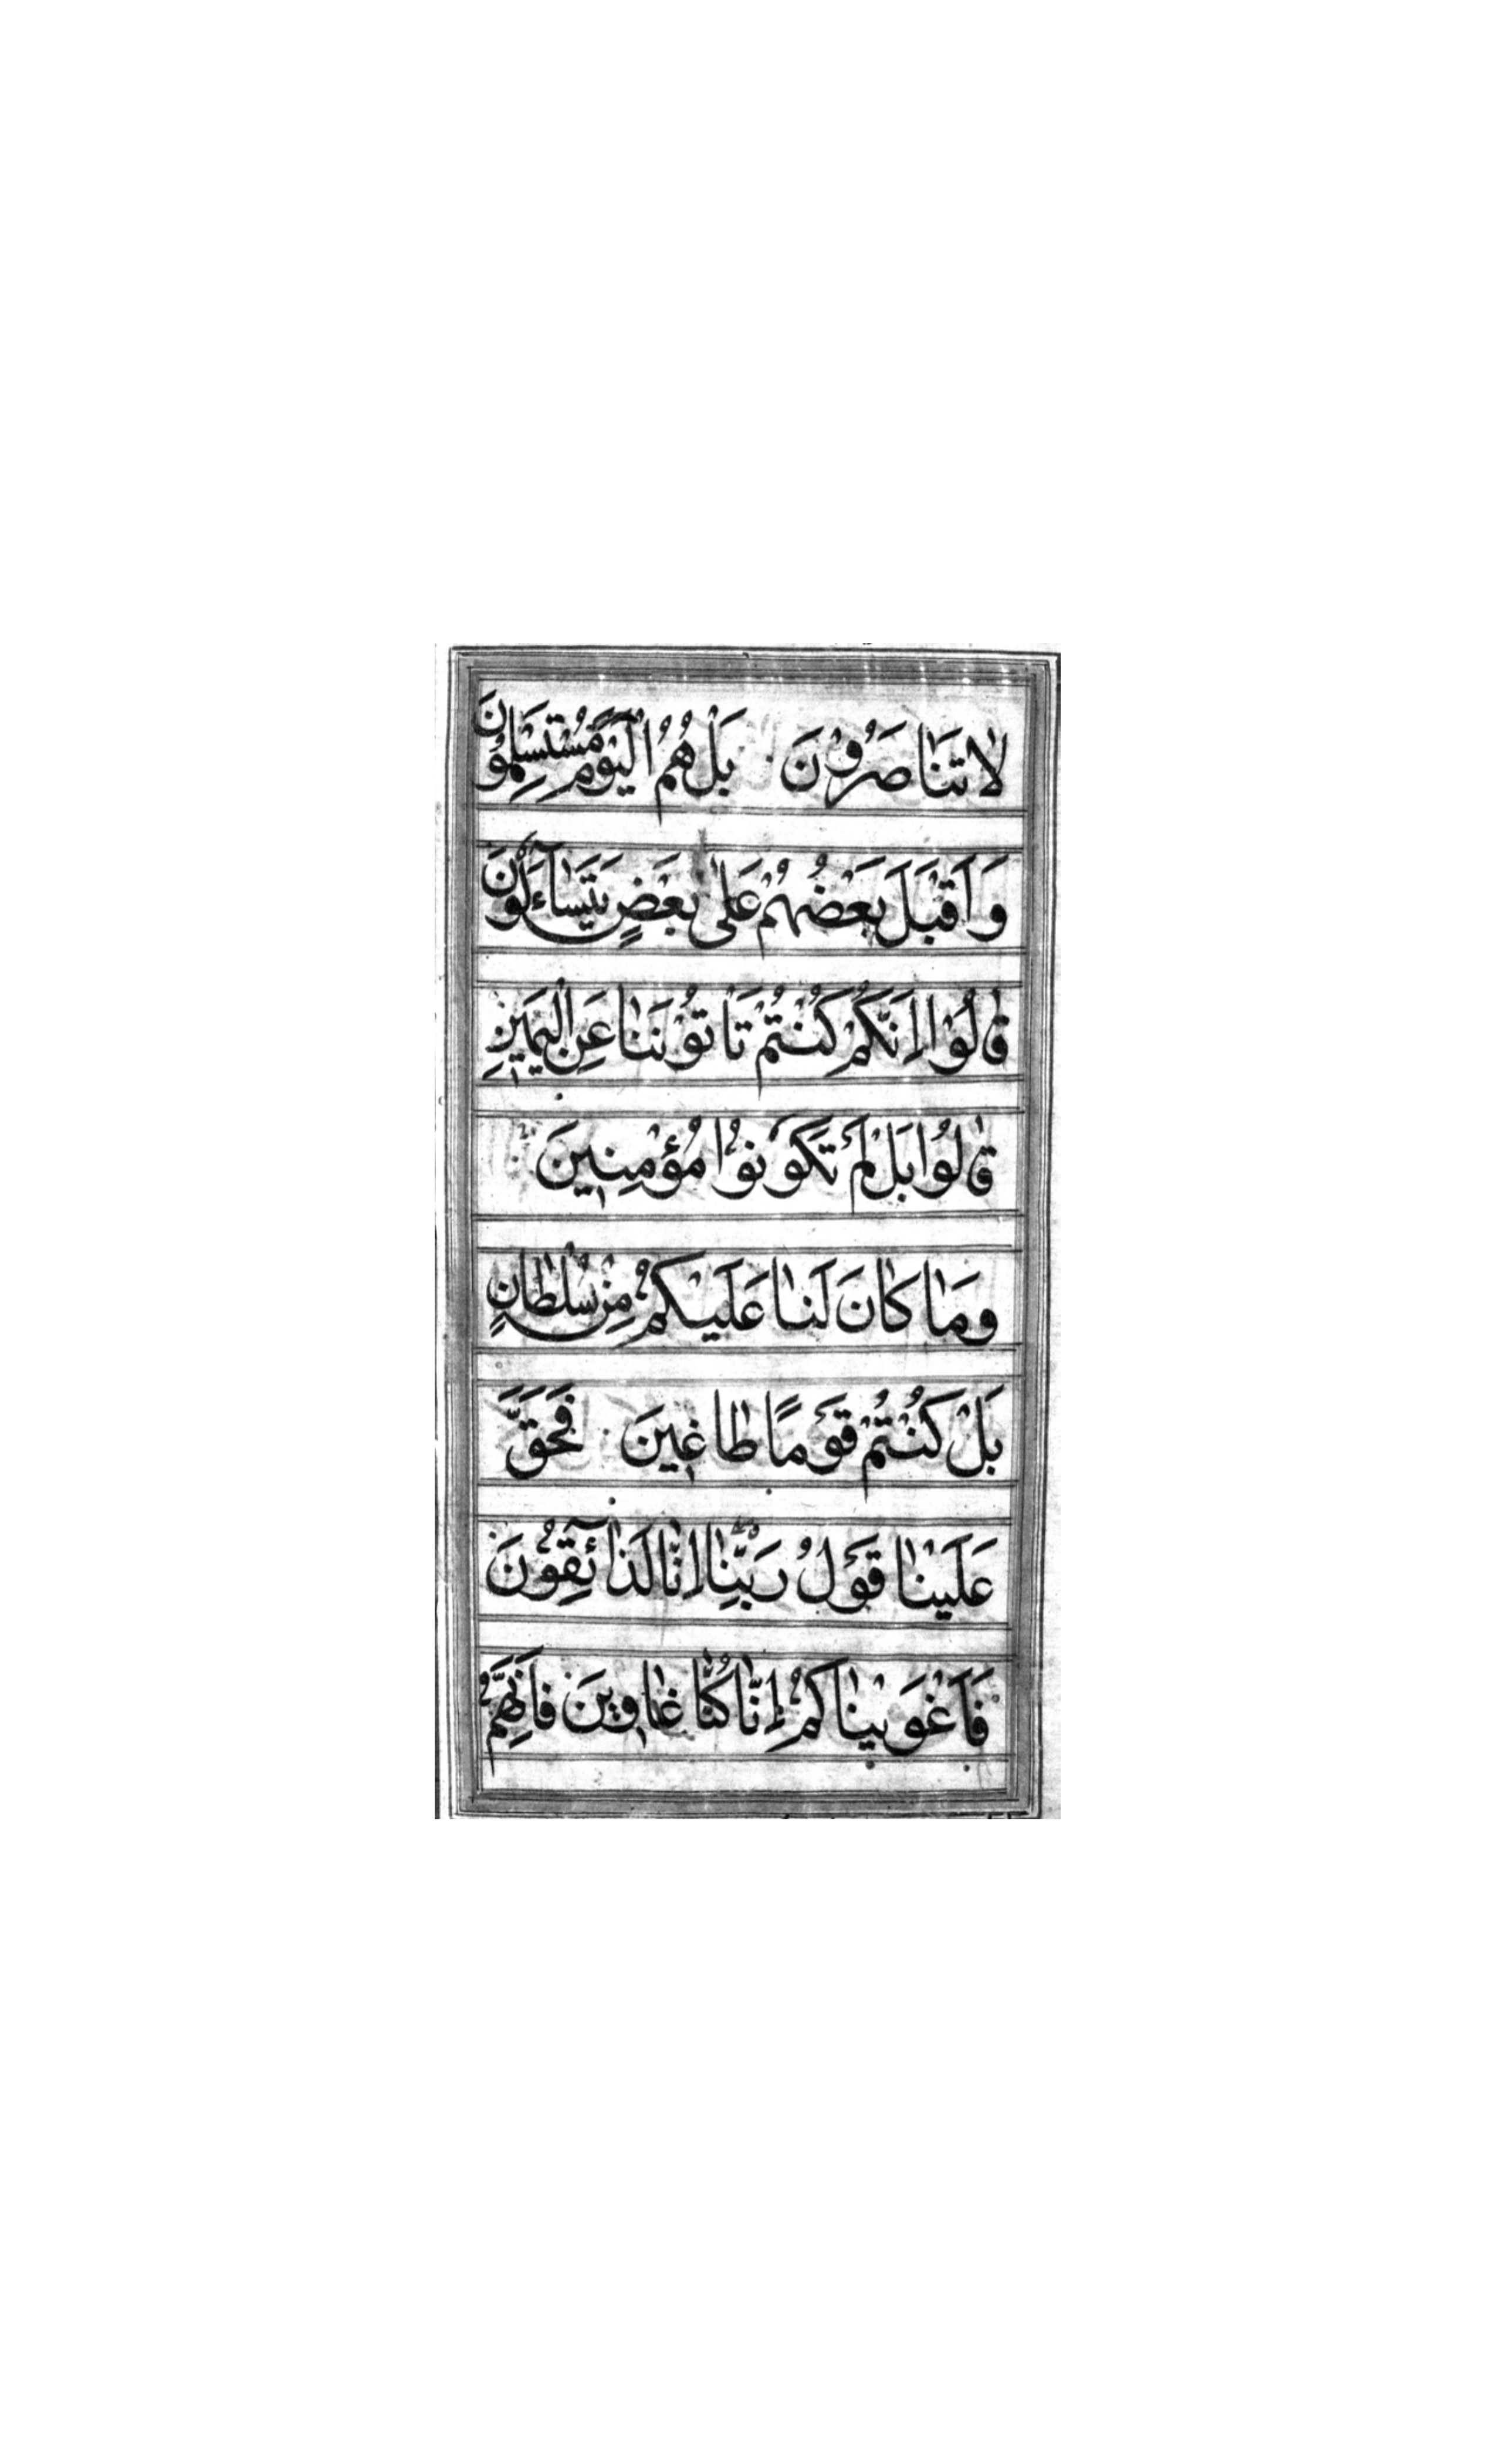 لَا تَنَاصَرُوْنَ بَلْ هُمُ الْيَوْمَ مُسْتَسْلِمُوْنَ
وَاَقْبَلَ بَعْضُهُمْ عَلٰى بَعْضٍ يَتَسَآءَلُوْنَ
قَالُوْا اِنَّكُمْ كُنْتُمْ تَاْتُوْنَنَا عَنِ الْيَمِيْنِ
قَالُوْا بَلْ لَمْ تَكُوْنُوْا مُؤْمِنِيْنَ
وَمَا كَانَ لَنَا عَلَيْكُمْ مِنْ سُلْطَانٍ
بَلْ كُنْتُمْ قَوْمًا طَاغِيْنَ فَحَقَّ
عَلَيْنَا قَوْلُ رَبِّنَا اِنَّا لَذَآئِقُوْنَ
فَاَغْوَيْنَاكُمْ اِنَّا كُنَّا غَاوِيْنَ فَاِنَّهُمْ